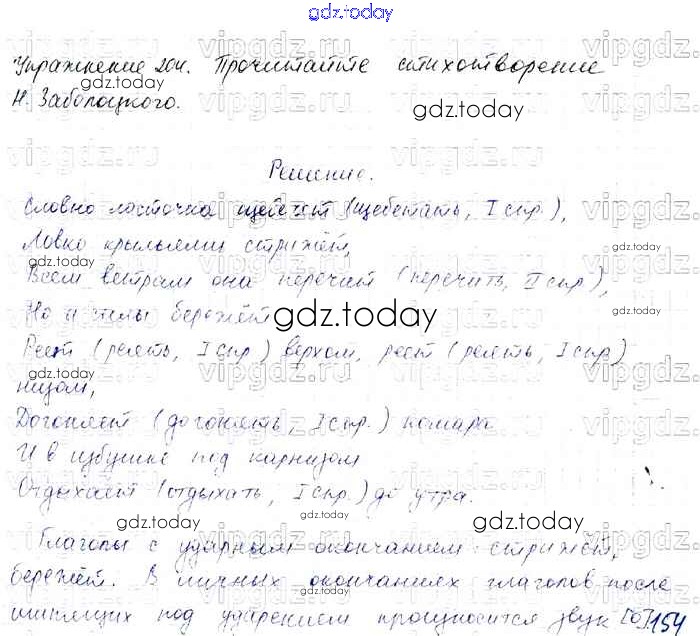 gdz.today
Упражнение 204. Прочитайте стихотворение
Н. Заболоцкого.
Решение.
Словно ласточка щебечет (щебетать, I спр.),
Ловко крыльями стрижёт,
Всем ветрам она перечит (перечить, II спр.),
Но и силы бережёт.
Реет (реять, I спр.) верхом, реет (реять, I спр.)
низом,
Догоняет (догонять, I спр.) комара
И в избушке под карнизом
Отдыхает (отдыхать, I спр.) до утра.
Глаголы с ударным окончанием: стрижёт,
бережёт. В личных окончаниях глаголов после
шипящих под ударением произносится звук [о] 154